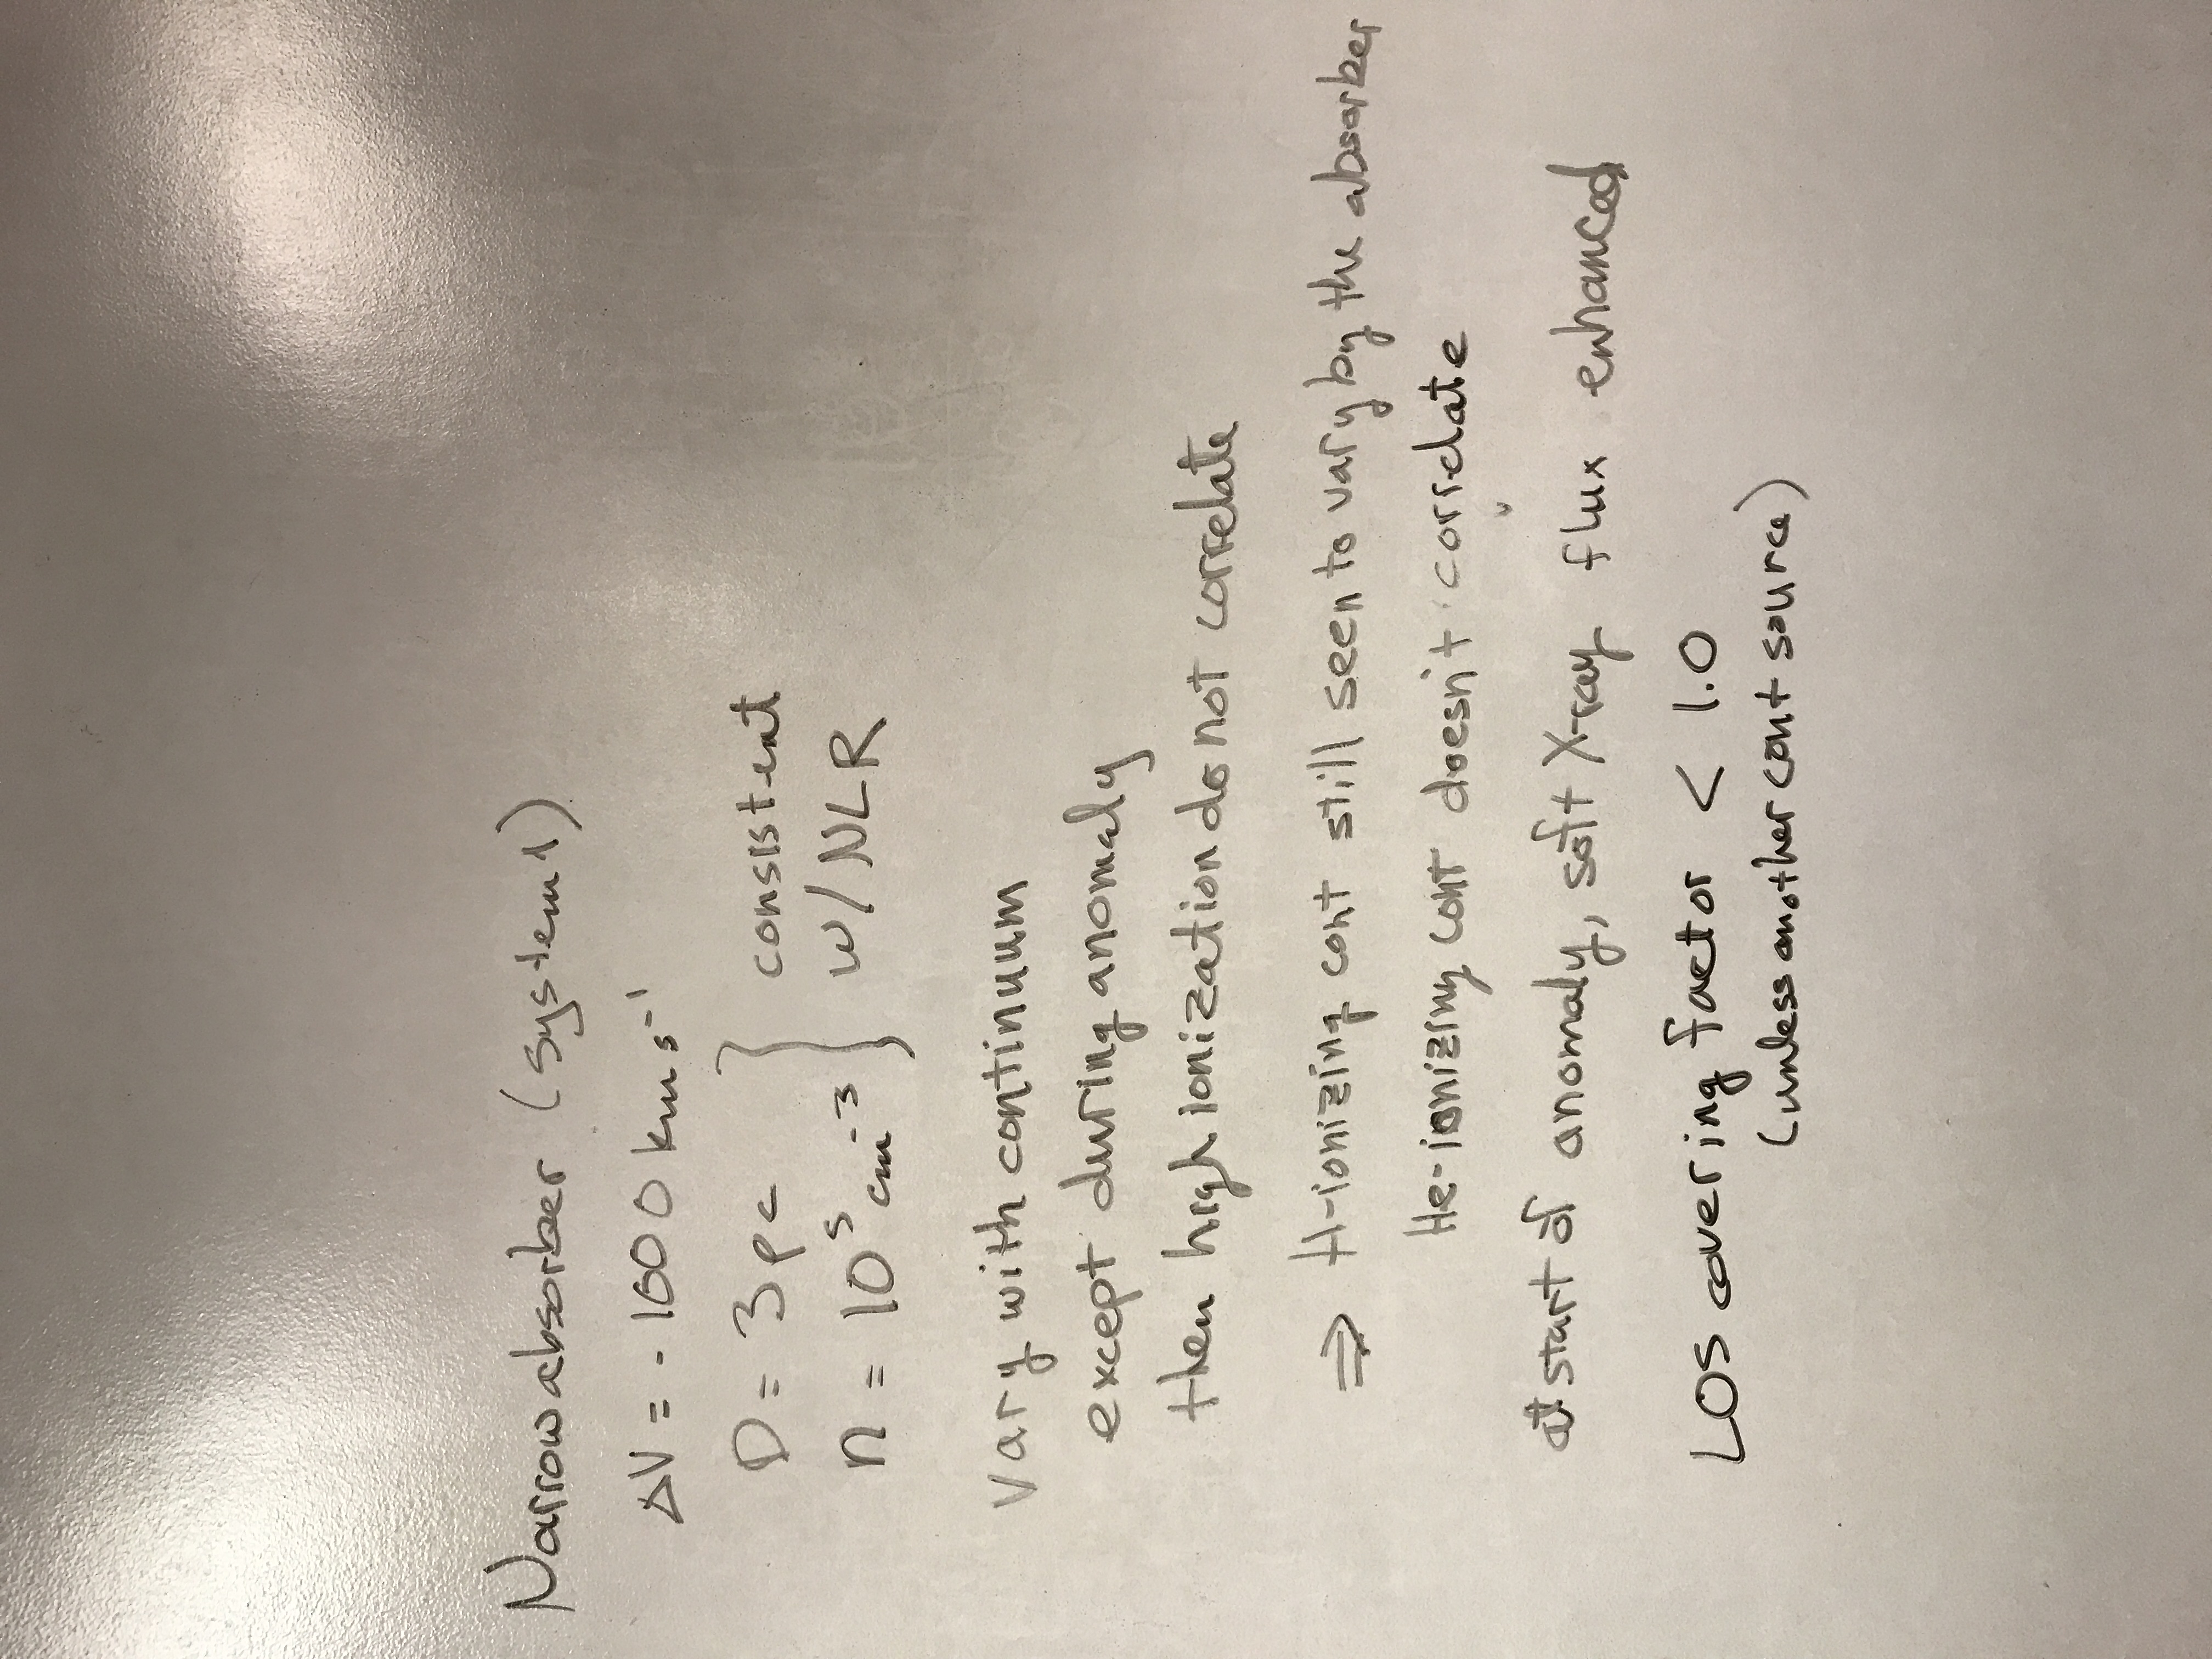 Narrow absorber (System 1)
ΔV = -1600 km s⁻¹
D = 3 pc } consistent
n = 10⁵ cm⁻³ } w/ NLR
Vary with continuum
except during anomaly
then high ionization do not correlate
⇒ H-ionizing cont still seen to vary by the absorber
He-ionizing cont doesn't correlate
at start of anomaly, soft X-ray flux enhanced
LOS covering factor < 1.0
(unless another cont source)